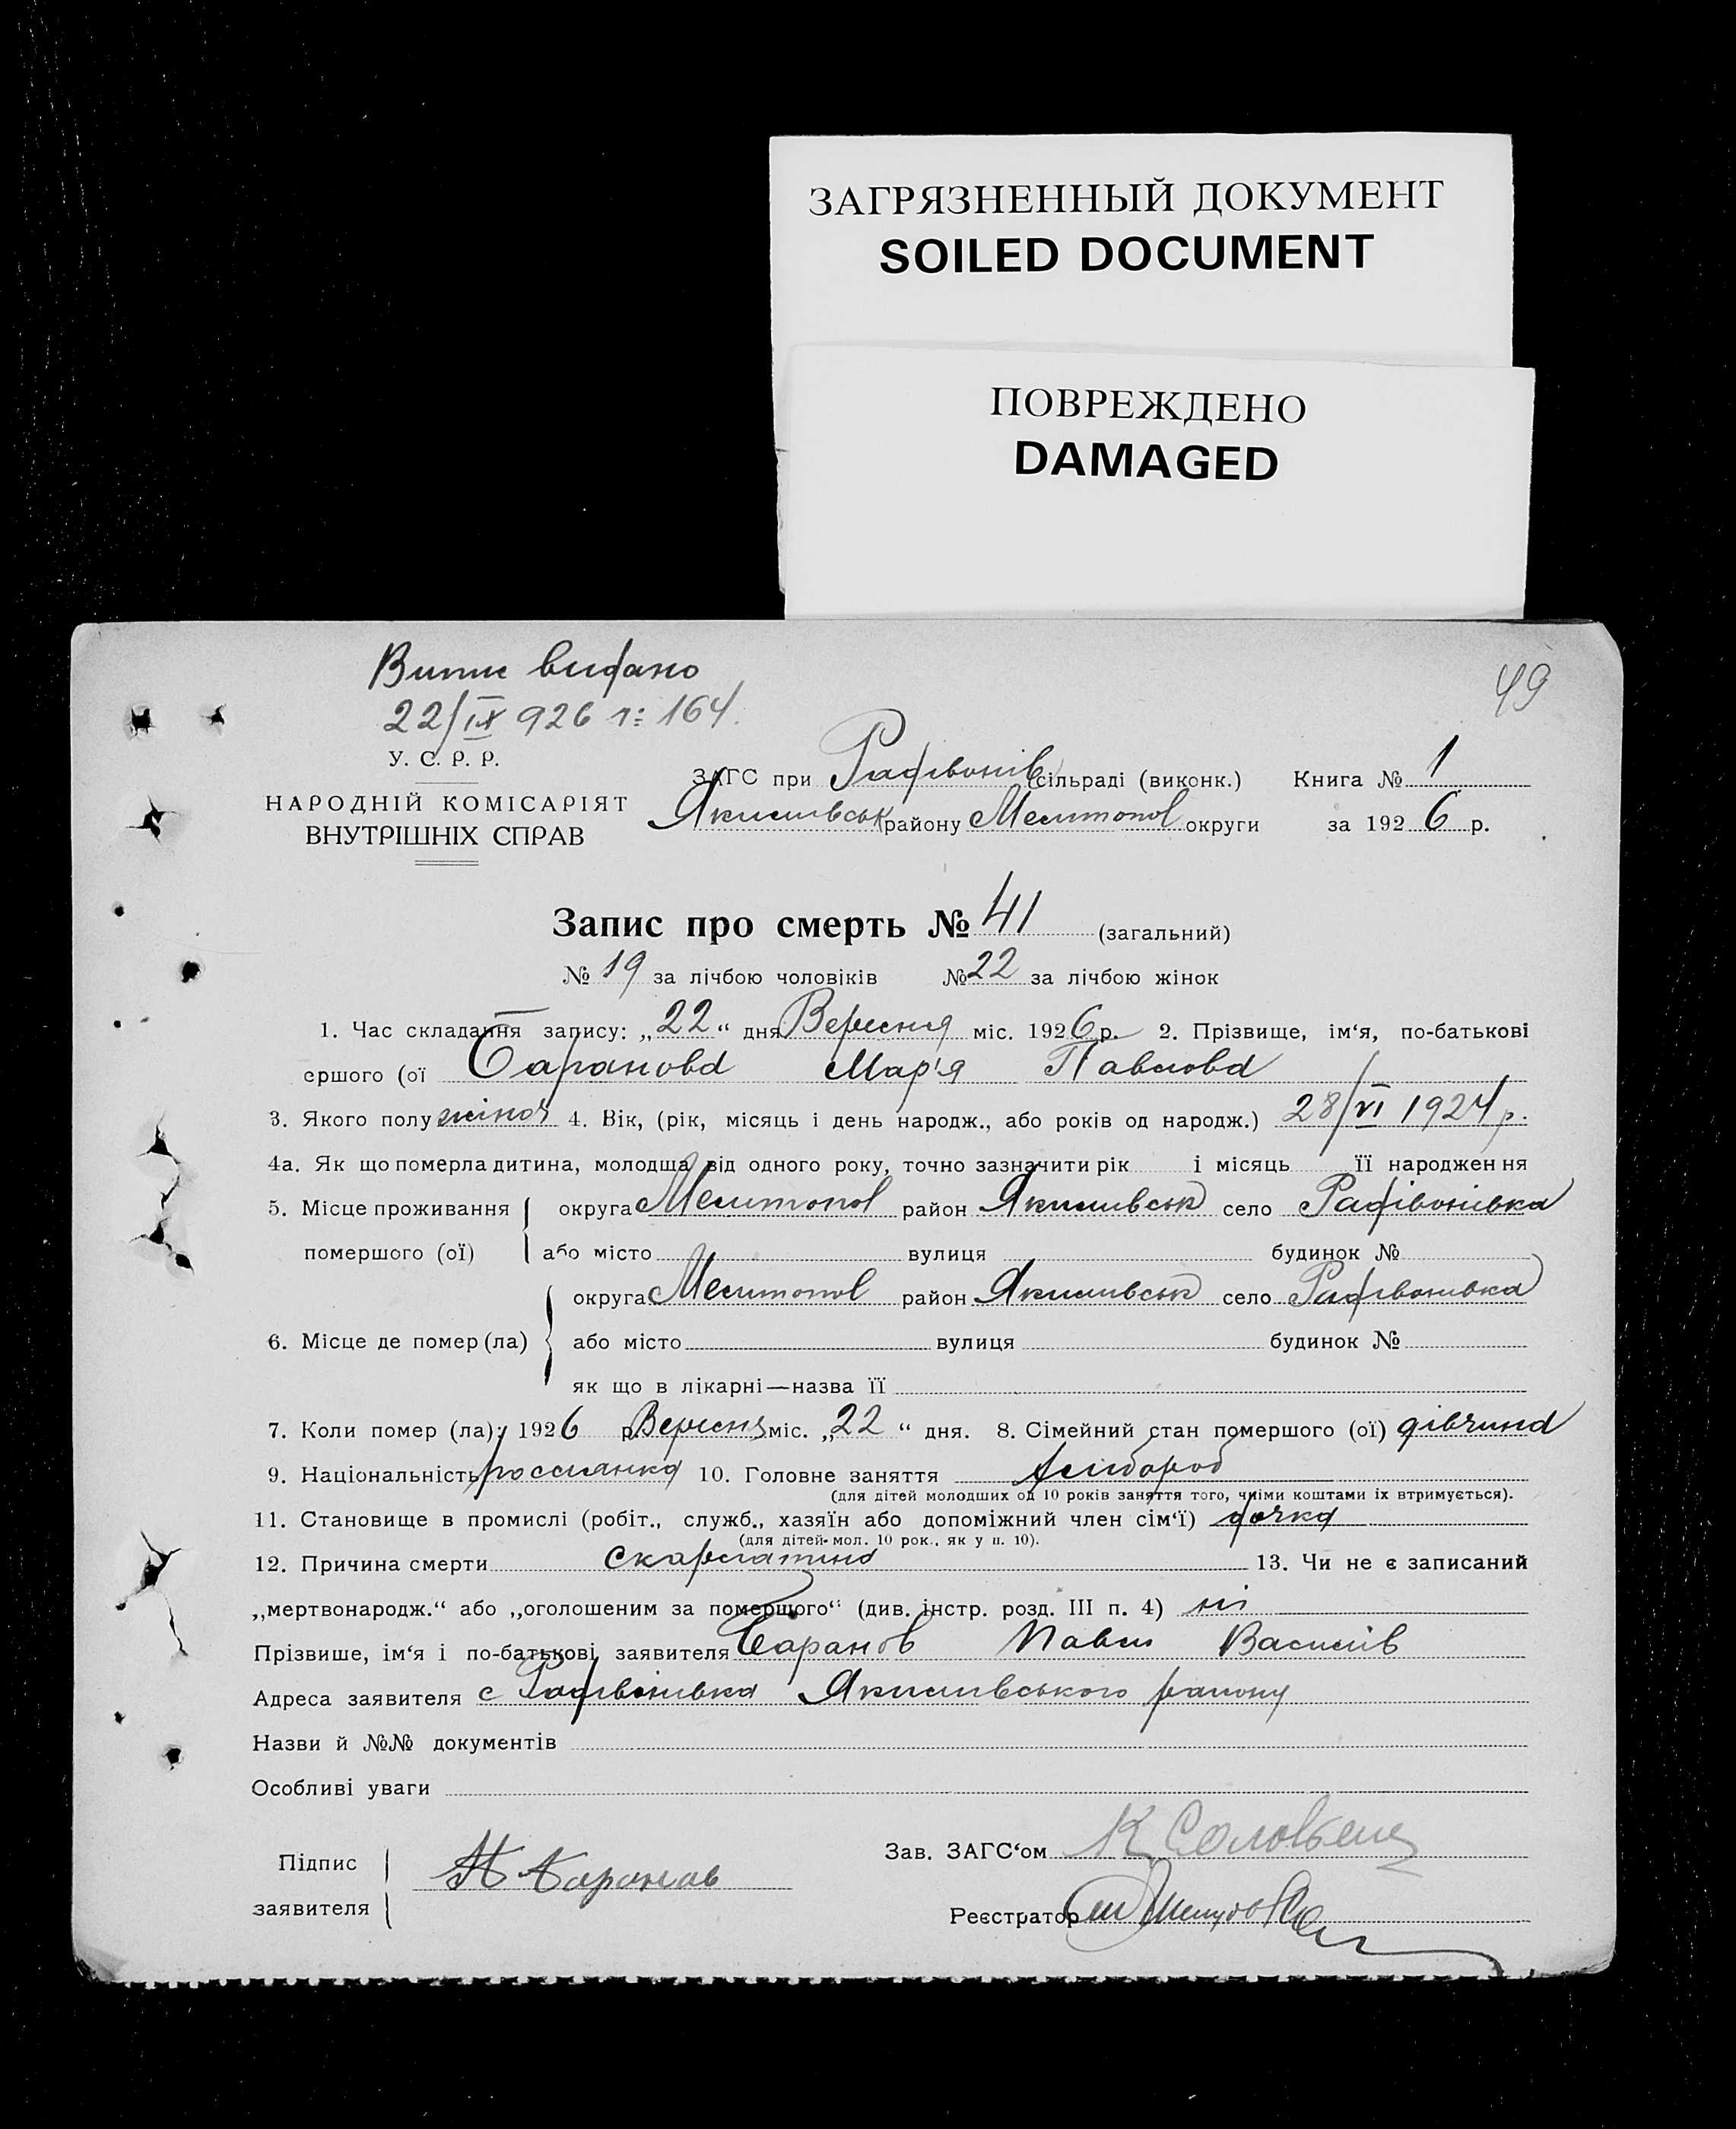 ЗАГРЯЗНЕННЫЙ ДОКУМЕНТ
SOILED DOCUMENT
ПОВРЕЖДЕНО
DAMAGED
Випис видано
49
22/IX 926 г: 164.
У. С. Р. Р.
ЗАГС при Радівонів сільраді (виконк.) Книга № 1
НАРОДНІЙ КОМІСАРІЯТ
Якимівськ району Мелитопол округи за 1926 р.
ВНУТРІШНІХ СПРАВ
Запис про смерть № 41 (загальний)
№ 19 за лічбою чоловіків № 22 за лічбою жінок
1. Час складання запису: „22“ дня Вересня міс. 1926 р. 2. Прізвище, ім‘я, по-батькові
ершого (ої Баранова Мар'я Павлова
3. Якого полу жіноч 4. Вік, (рік, місяць і день народж., або років од народж.) 28/VI 1924 р.
4а. Як що померла дитина, молодща від одного року, точно зазначити рік і місяць її народження
5. Місце проживання округа Мелитопол район Якимивськ село Радівонівка
помершого (ої) або місто вулиця будинок №
округа Мелитопол район Якимивськ село Радівонивка
6. Місце де помер (ла) або місто вулиця будинок №
як що в лікарні—назва її
7. Коли помер (ла): 1926 р. Вересня міс. „22“ дня. 8. Сімейний стан помершого (ої) дівчина
9. Національність россіянка 10. Головне заняття хлибороб
(для дітей молодших од 10 років заняття того, чиїми коштами їх втримується).
11. Становище в промислі (робіт., служб., хазяїн або допоміжний член сім‘ї) дочка
(для дітей мол. 10 рок., як у п. 10).
12. Причина смерти скарлатина 13. Чи не є записаний
„мертвонародж.“ або „оголошеним за помершого“ (див. інстр. розд. III п. 4) ні
Прізвише, ім‘я і по-батькові заявителя Баранов Павло Василів
Адреса заявителя с Радівонивка Якимивського району
Назви й №№ документів
Особливі уваги
Зав. ЗАГС‘ом К Соловьев
Підпис
заявителя П Баранов
Реєстратор